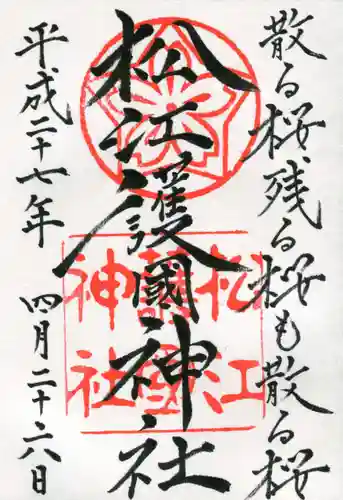 散る桜残る桜も散る桜
松江護國神社
松江
護國
神社
平成二十七年
四月二十六日